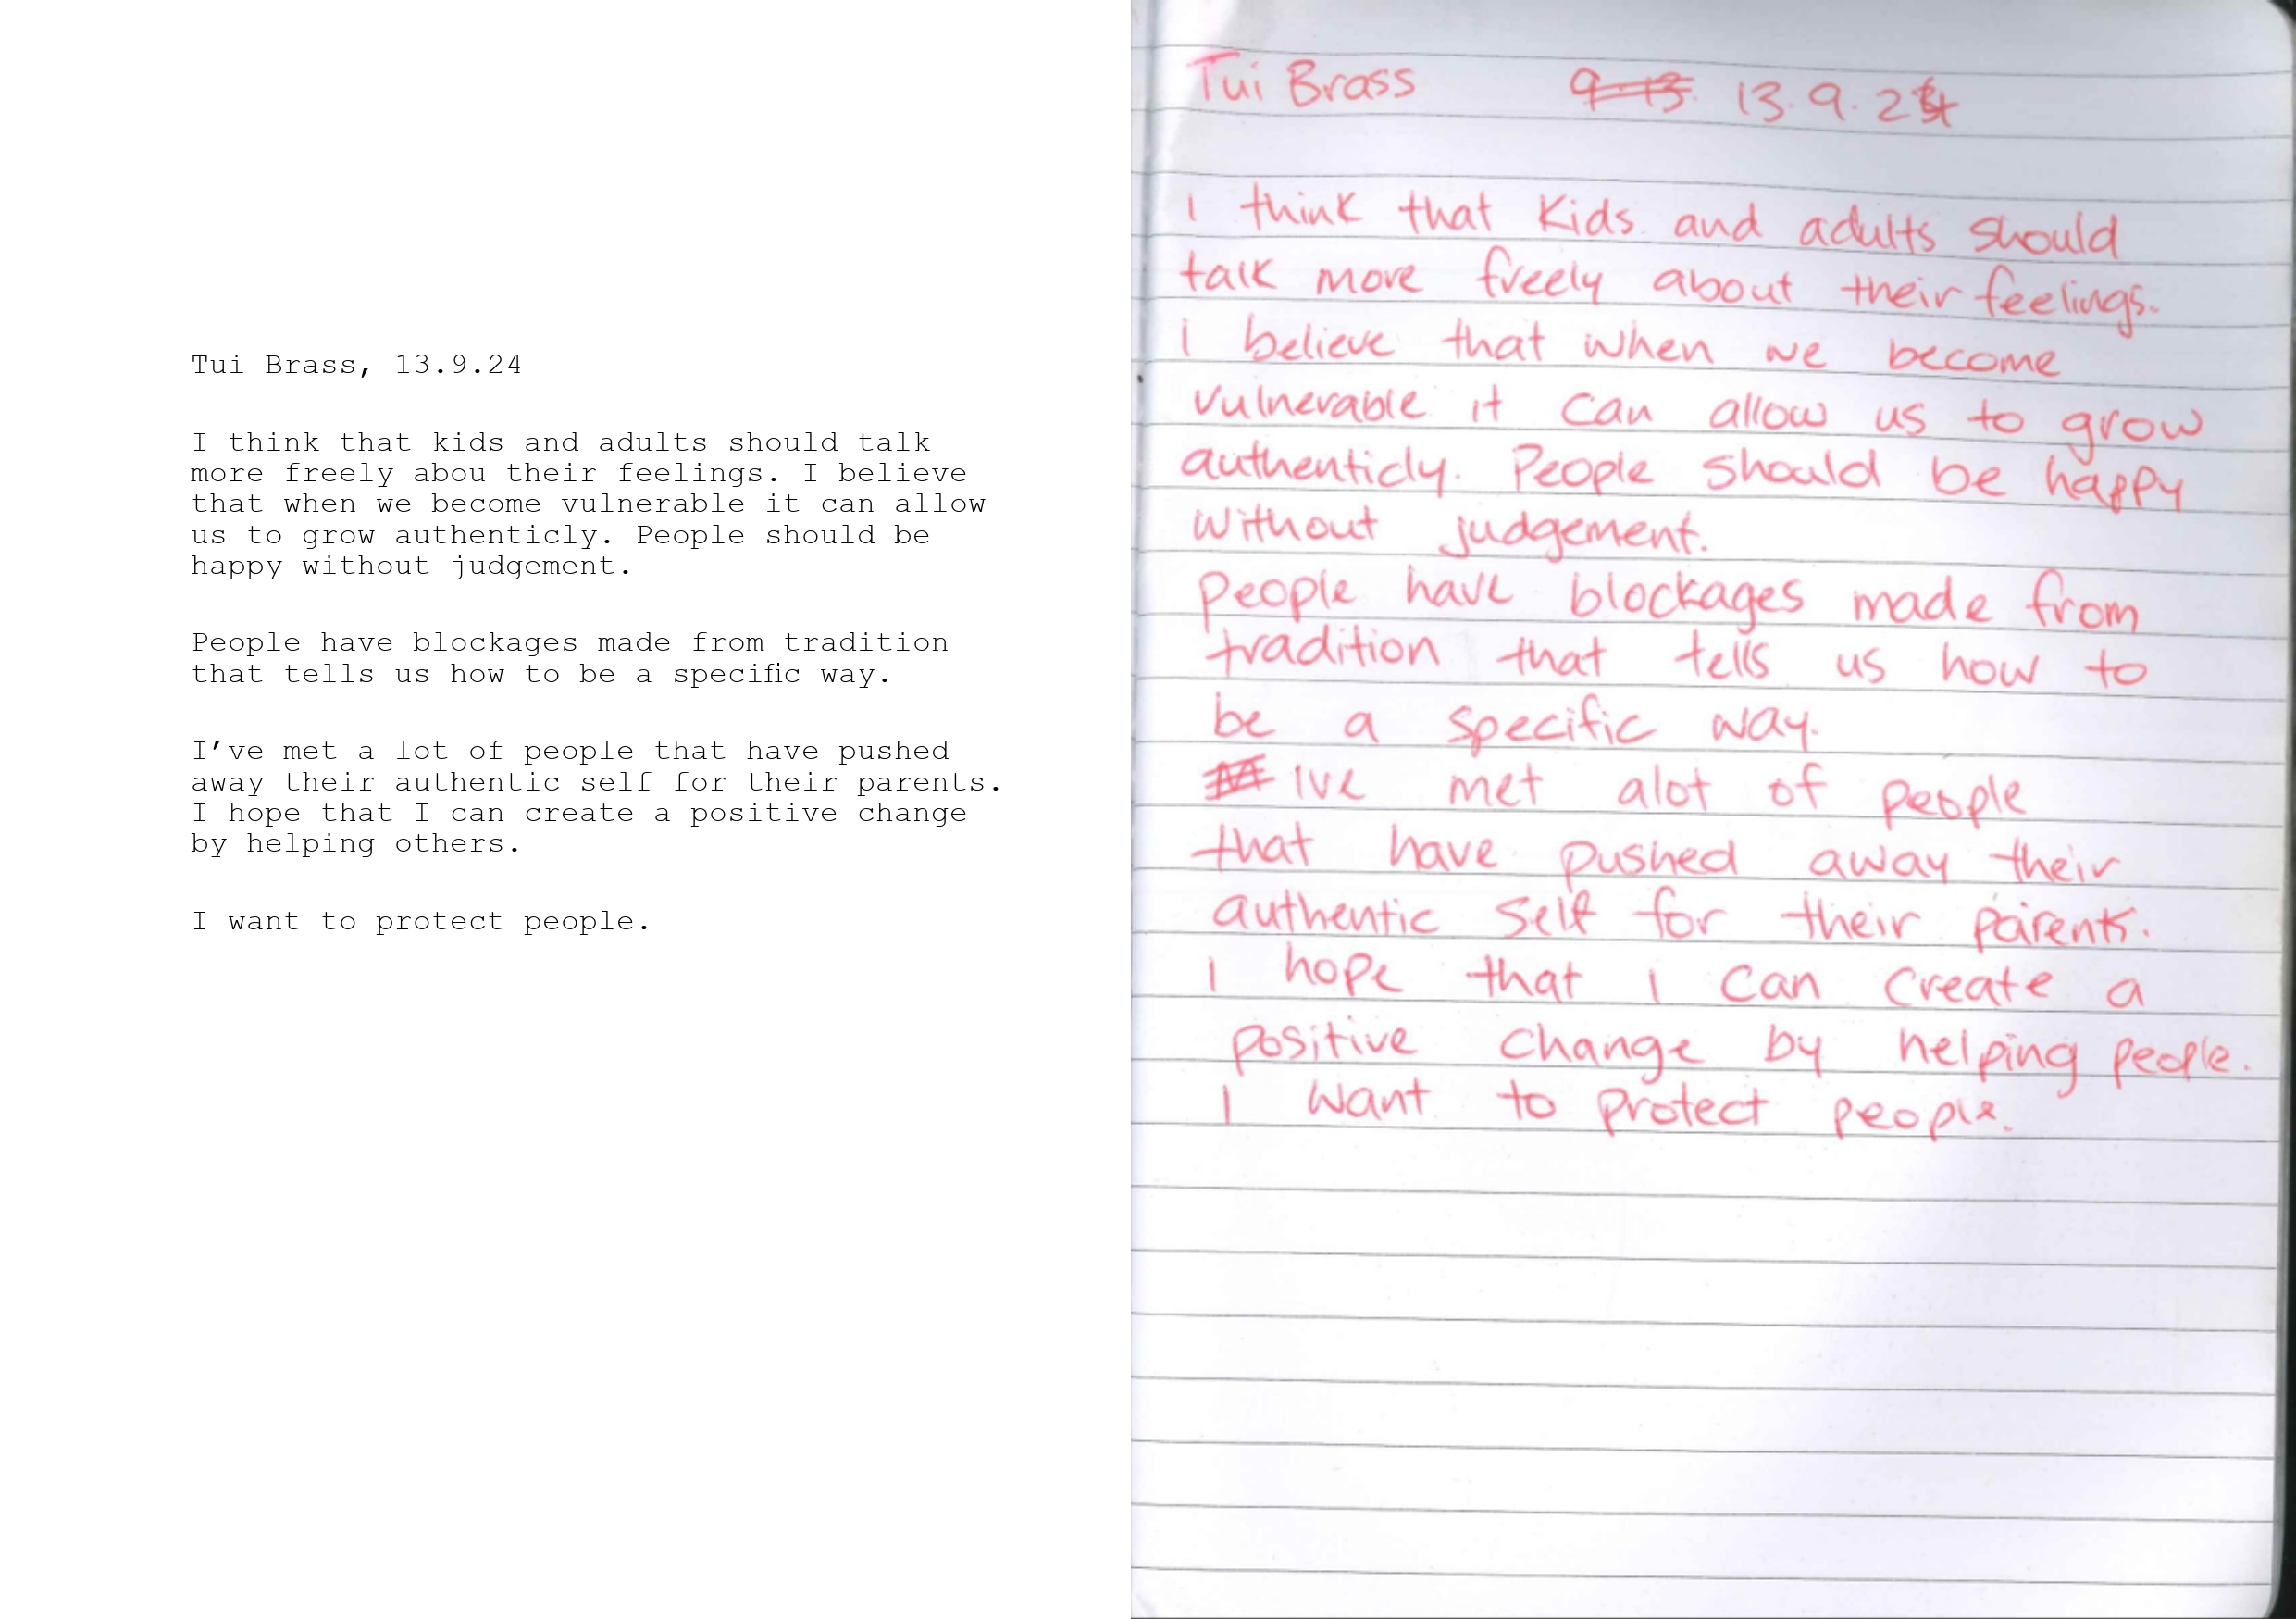 Tui Brass, 13.9.24
I think that kids and adults should talk
more freely abou their feelings. I believe
that when we become vulnerable it can allow
us to grow authenticly. People should be
happy without judgement.
People have blockages made from tradition
that tells us how to be a specific way.
I've met a lot of people that have pushed
away their authentic self for their parents.
I hope that I can create a positive change
by helping others.
I want to protect people.
Tui Brass 9.13. 13.9.24
I think that Kids and adults should
talk more freely about their feelings.
I believe that when we become
vulnerable it can allow us to grow
authenticly. People should be happy
without judgement.
People have blockages made from
tradition that tells us how to
be a specific way.
Ive met alot of people
that have pushed away their
authentic self for their parents.
I hope that I can create a
positive change by helping people.
I want to protect people.